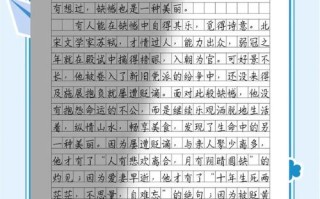 有想过，缺憾也是一种美丽。
有人能在缺憾中自得其乐，觅得诗意。北
宋文学家苏轼，才情过人，能力出众，弱冠之
年就在殿试中摘得榜眼，入朝为官。可好景不
长，他被卷入了新旧党派的纷争中，还没来得
及施展抱负就屡遭贬谪。面对此般缺憾，他没
有抱怨命运的不公，而是继续乐观洒脱地生活
着，纵情山水，畅享美食，发现了生命中的另
一种美丽。因为屡遭贬谪，与亲人聚少离多，
他才有了“人有悲欢离合，月有阴晴圆缺”的
灼见；因为爱妻早逝，他才有了“十年生死两
茫茫，不思量，自难忘”的绝句；因为被贬黄